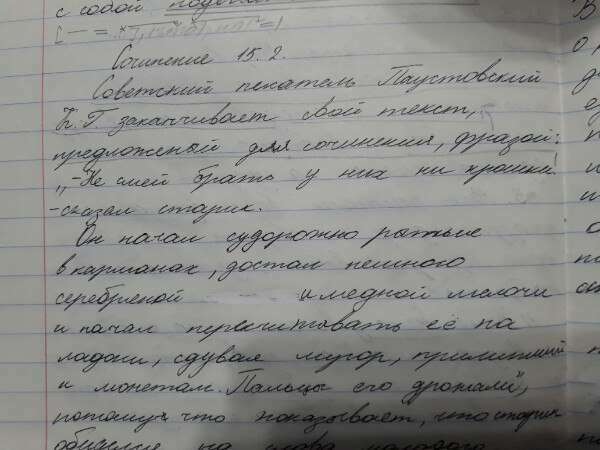 с собой
Сочинение 15.2.
Советский писатель Паустовский
К.Г. заканчивает свой текст,
предложеный для сочинения, фразой:
„-Не смей брать у них ни крошки!
-сказал старик.
Он начал судорожно рытье
в карманах, достал немного
серебреной и медной мелочи
и начал пересчитовать её на
ладони, сдувая мусор, прилипший
к монетам. Пальцы его дрожали",
потому что показывает, что старик
обиделся на слова молодого
В